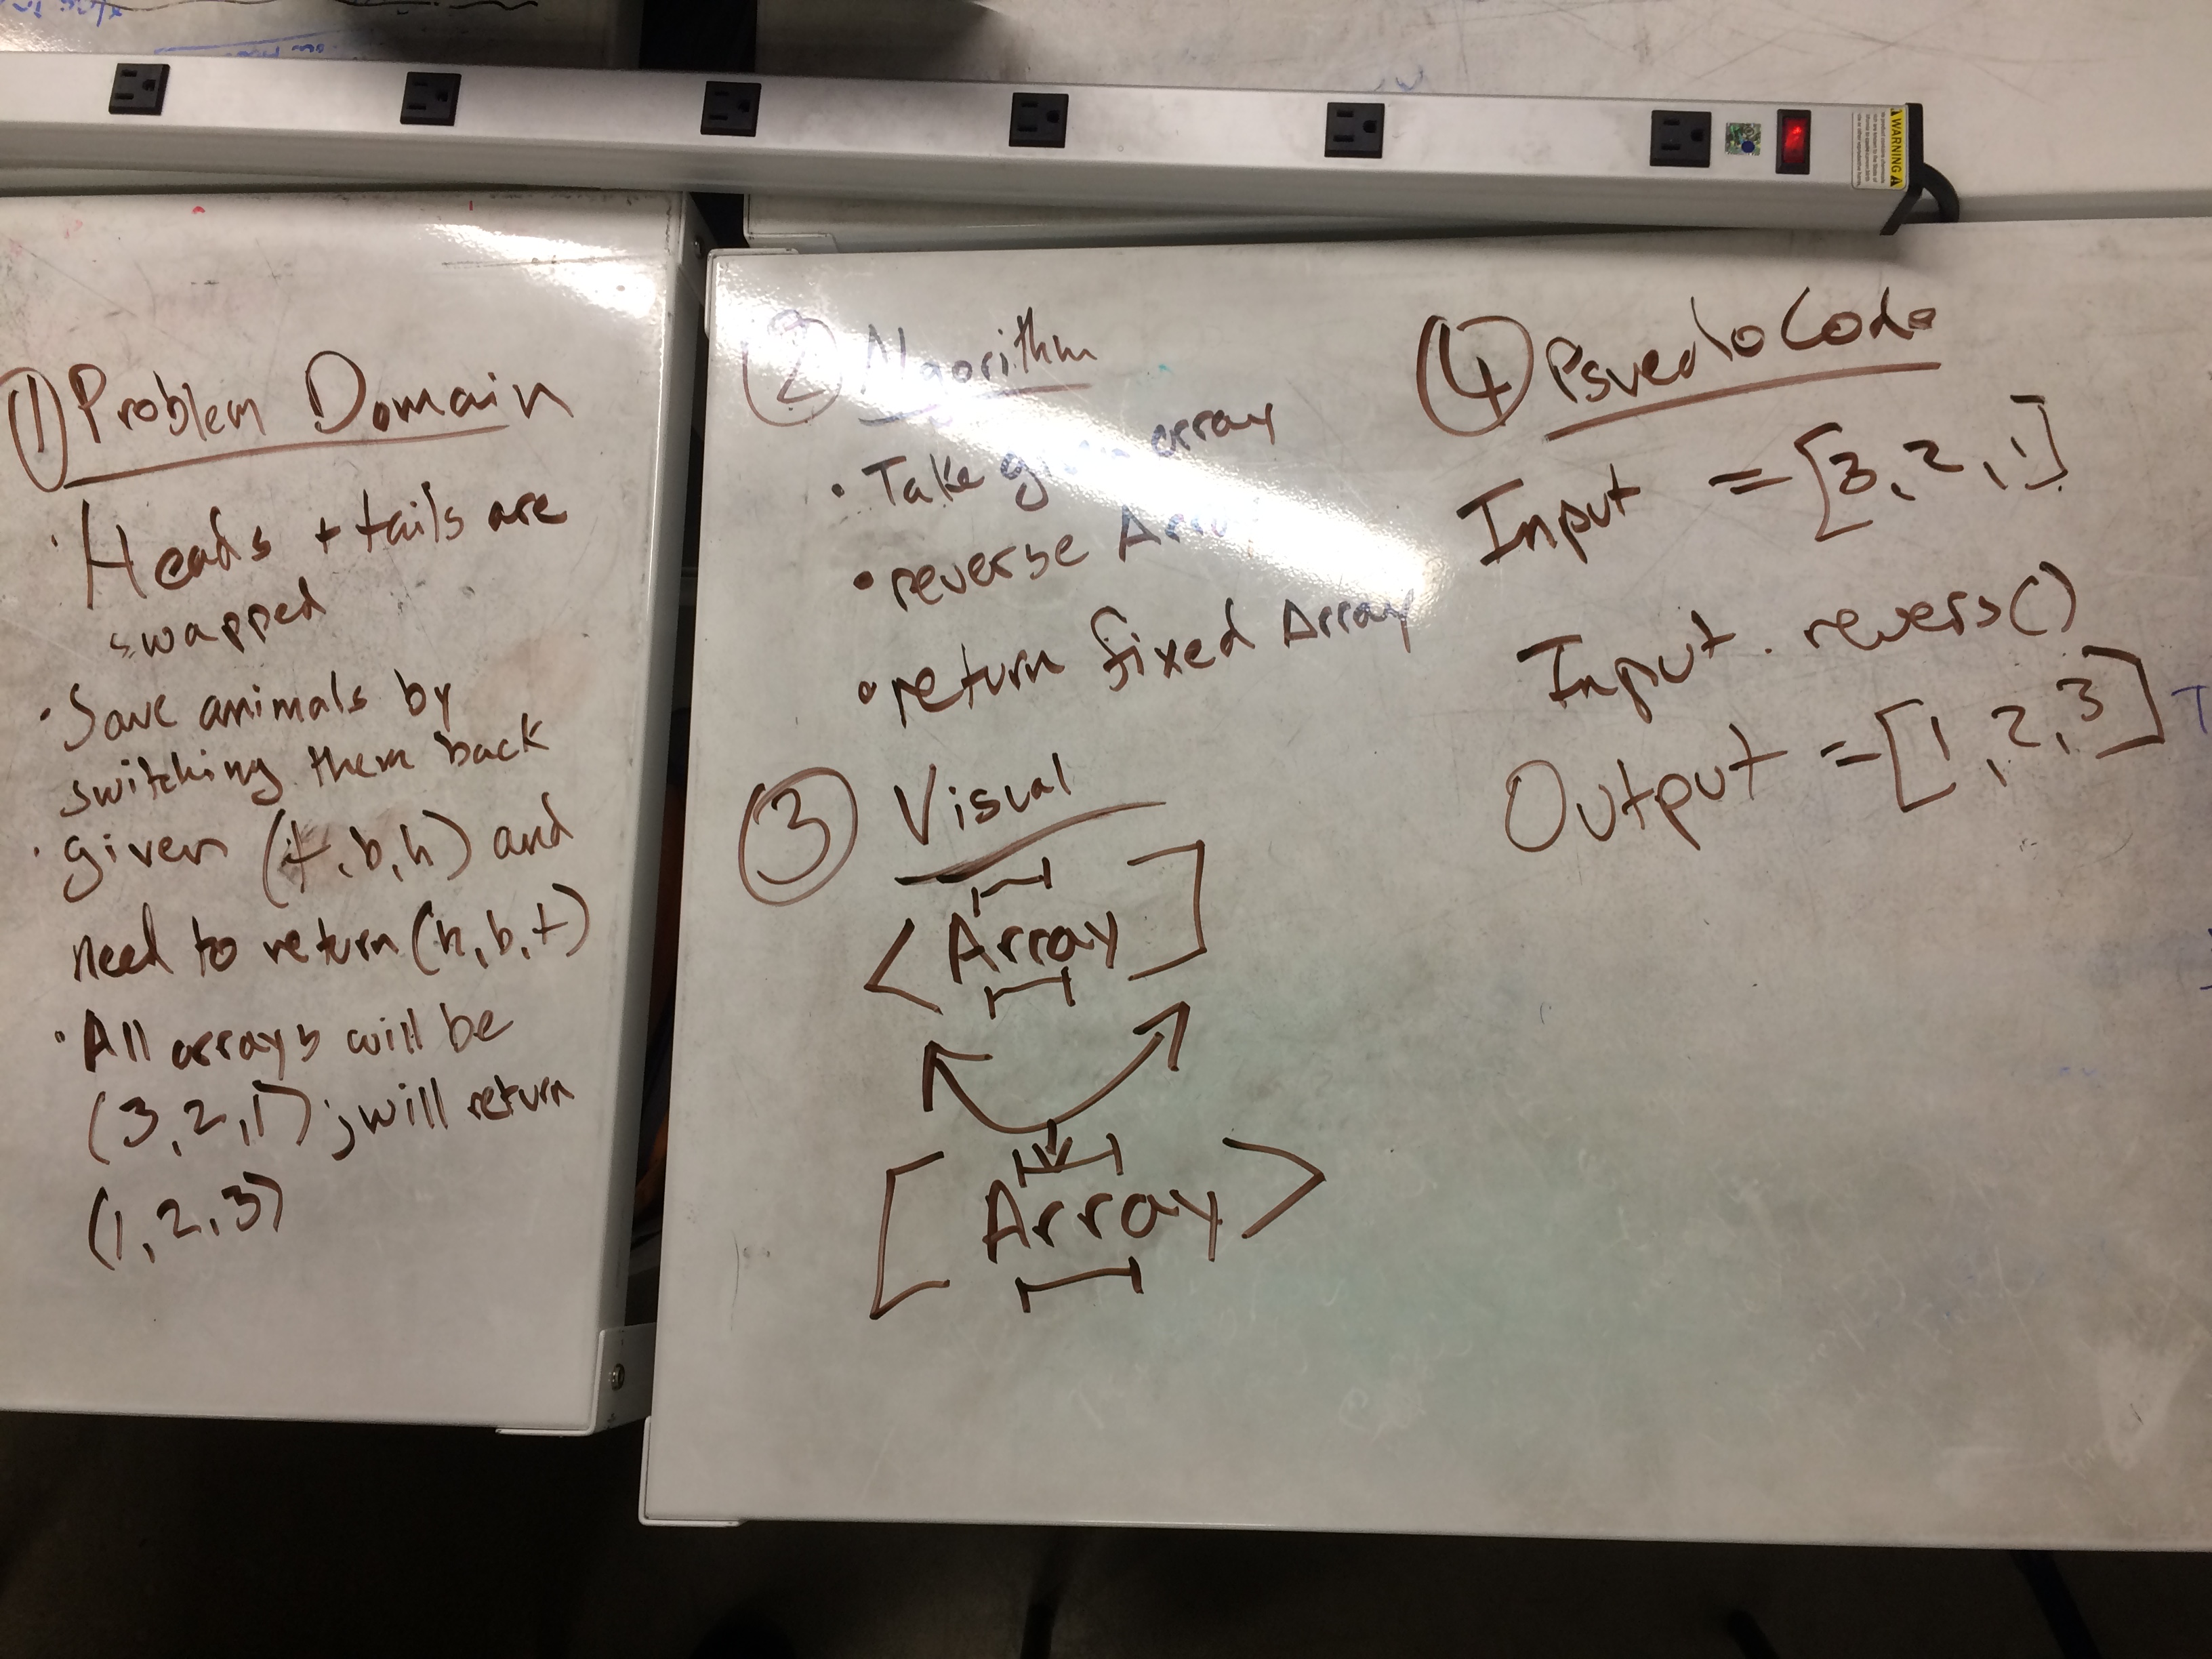 ① Problem Domain
· Heads + tails are
swapped
· Save animals by
switching them back
· given (t,b,h) and
need to return (h,b,t)
· All arrays will be
(3,2,1); will return
(1,2,3)
② Algorithm
· Take given array
· reverse Array
· return fixed Array
③ Visual
< Array ]
[ Array >
④ Psuedo Code
Input = [3,2,1]
Input . revers()
Output = [1,2,3]
WARNING